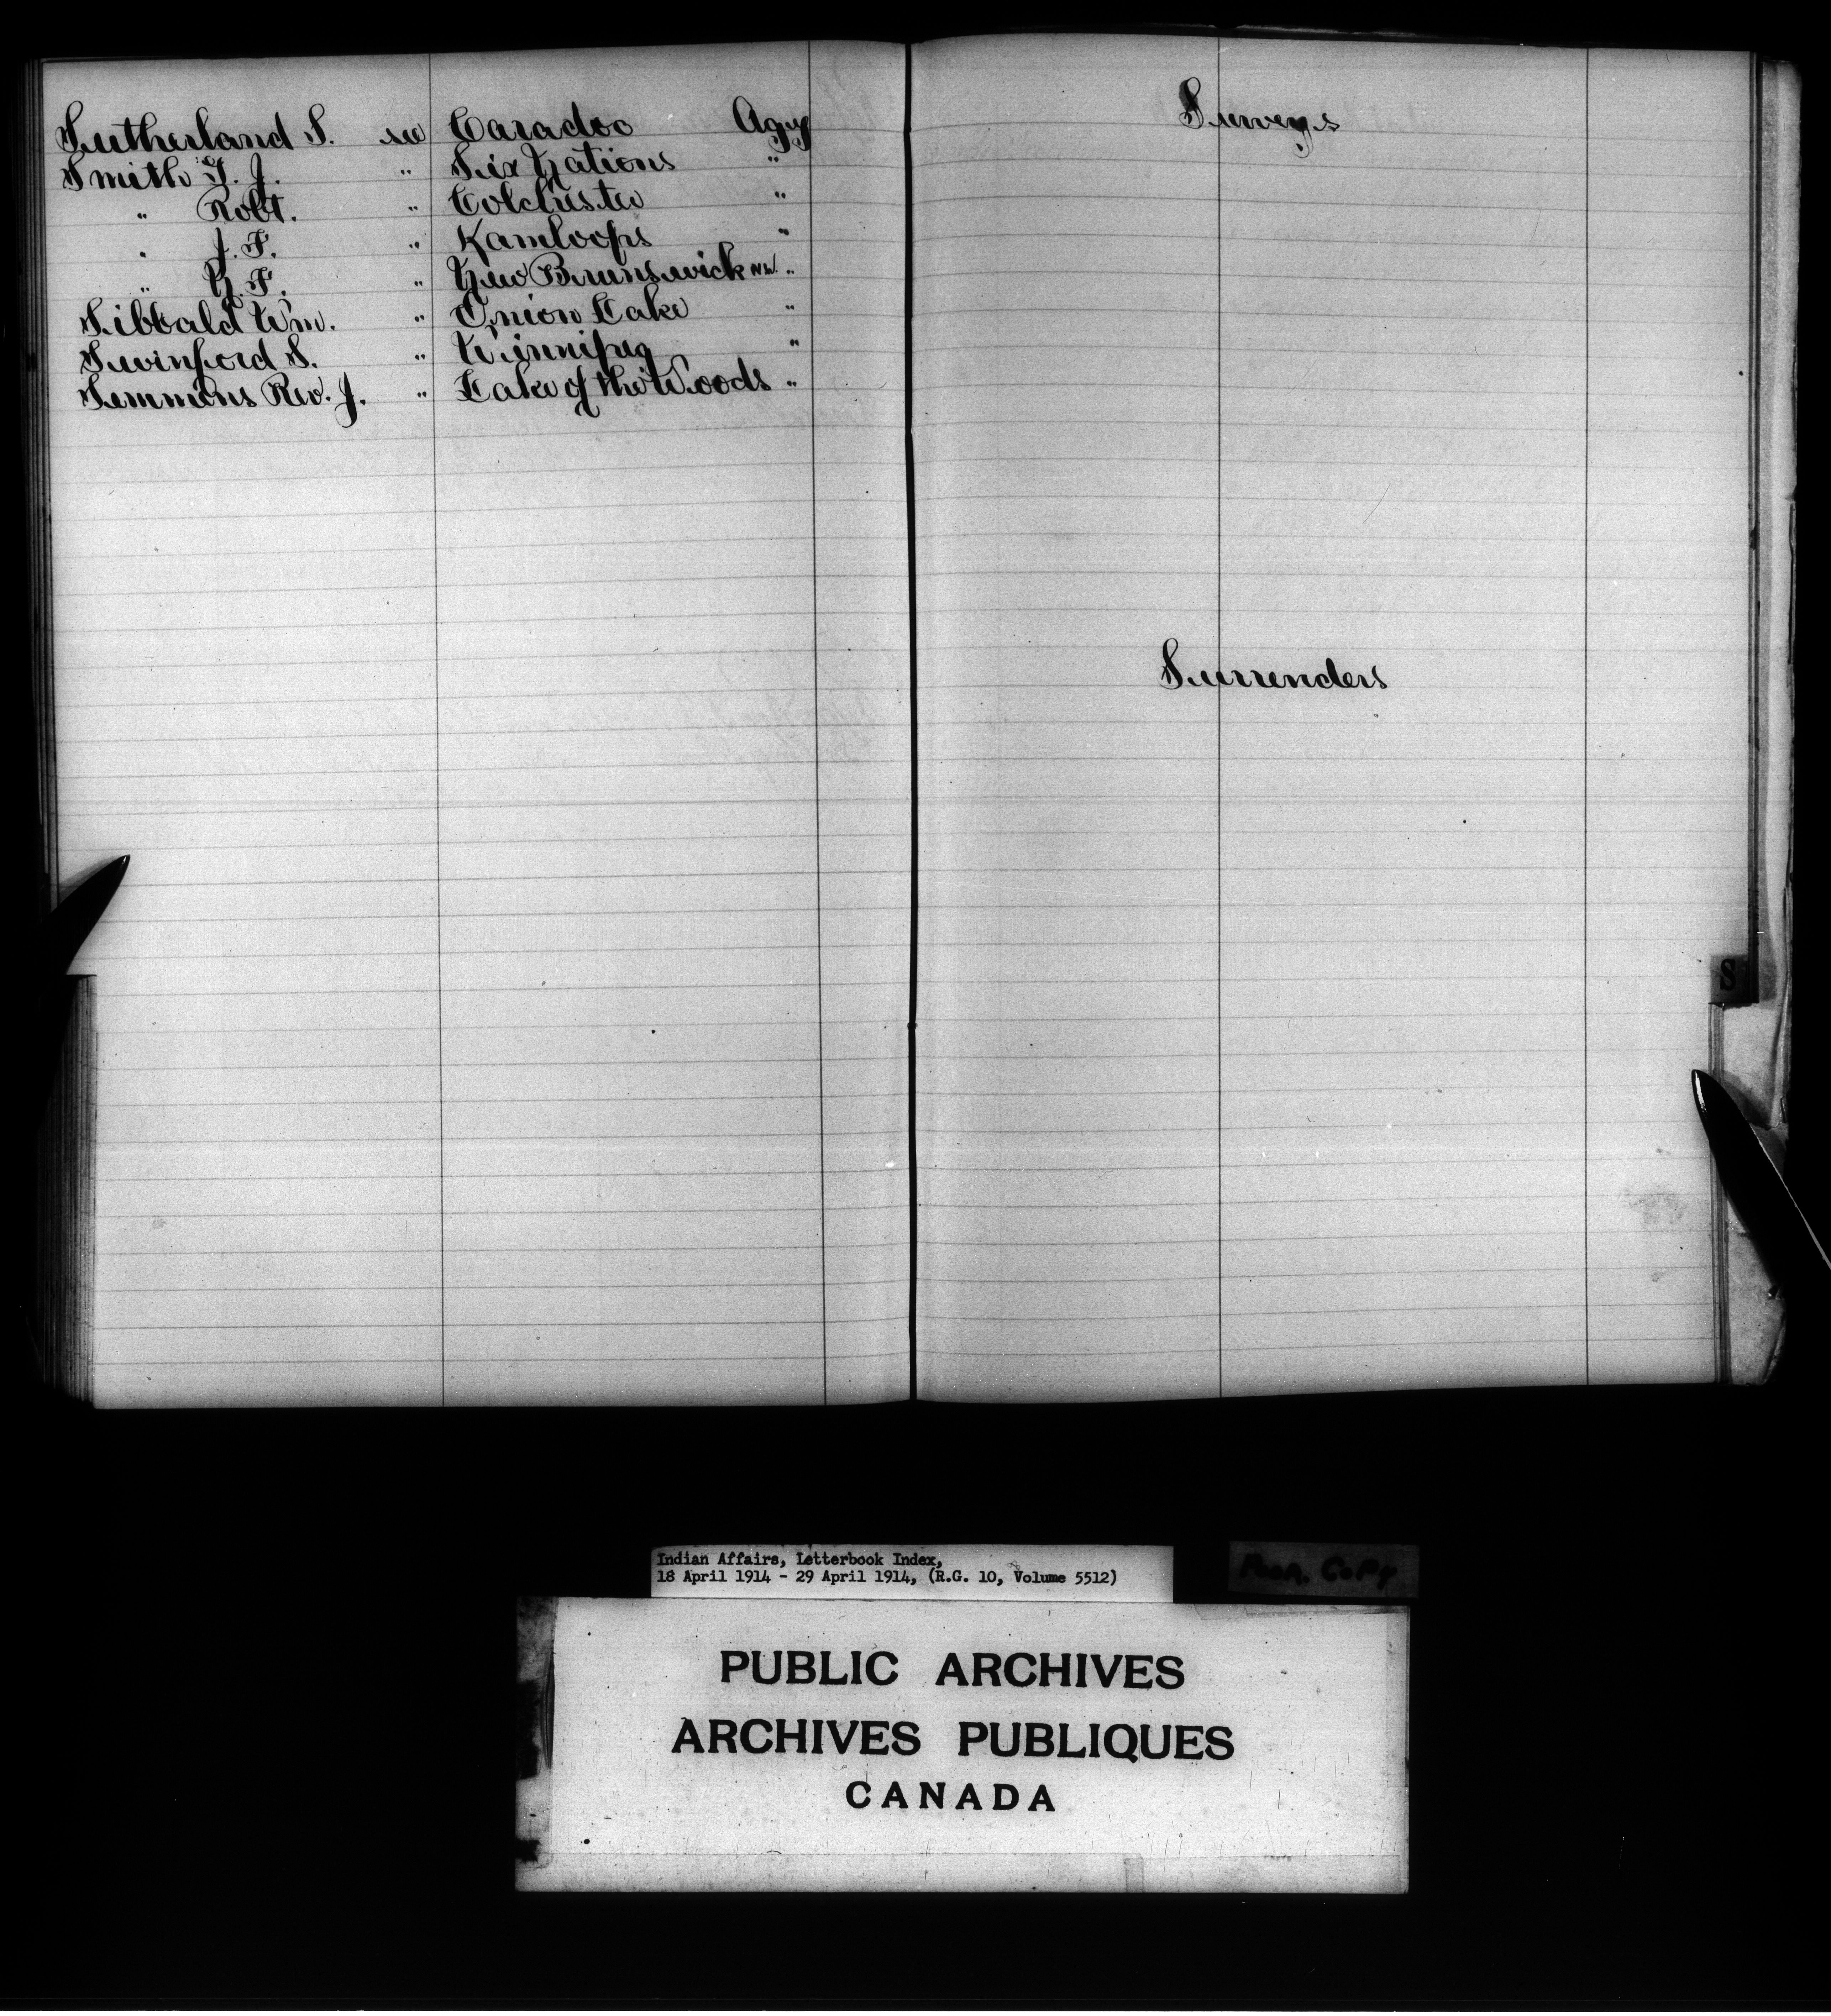 Sutherland S. see Caradoc Agcy
Smith G. J. " Six Nations "
" Robt. " Colchester "
" J. F. " Kamloops "
" N. F. " New Brunswick N.E. "
Sibbald Wm. " Onion Lake "
Swinford S. " Winnipeg "
Semmens Rev. J. " Lake of the Woods "
Surveys
Surrenders
S
Indian Affairs, Letterbook Index,
18 April 1914 - 29 April 1914, (R.G. 10, Volume 5512)
Poor Copy
PUBLIC ARCHIVES
ARCHIVES PUBLIQUES
CANADA